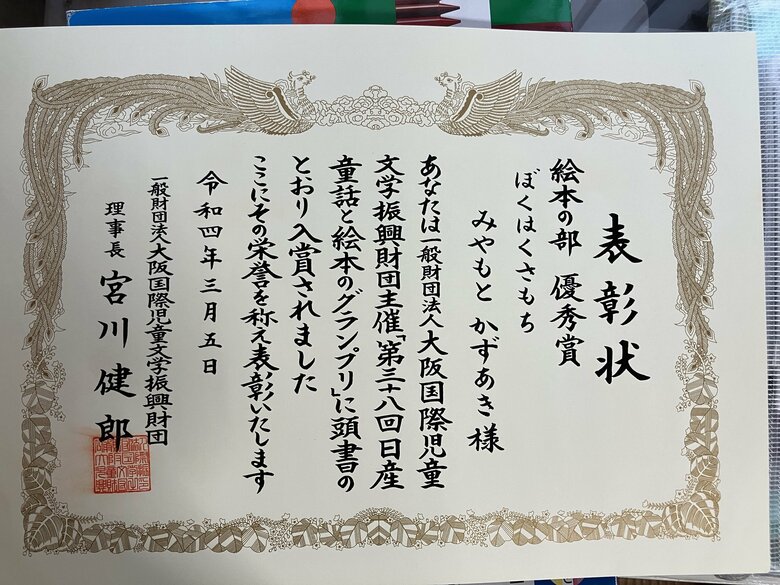 表彰状
絵本の部 優秀賞
ぼくはくさもち
みやもと かずあき 様
あなたは一般財団法人大阪国際児童
文学振興財団主催「第三十八回日産
童話と絵本のグランプリ」に頭書の
とおり入賞されました
ここにその栄誉を称え表彰いたします
令和四年三月五日
一般財団法人大阪国際児童文学振興財団
理事長 宮川健郎